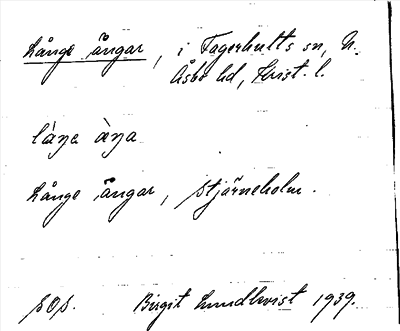 Långe ängar, i Fagerhults sn, N.
Åsbo hd, Krist. l.
låŋe äŋa
Långe ängar, Stjärneholm.
S.O.S. Birgit Lundkvist 1939.